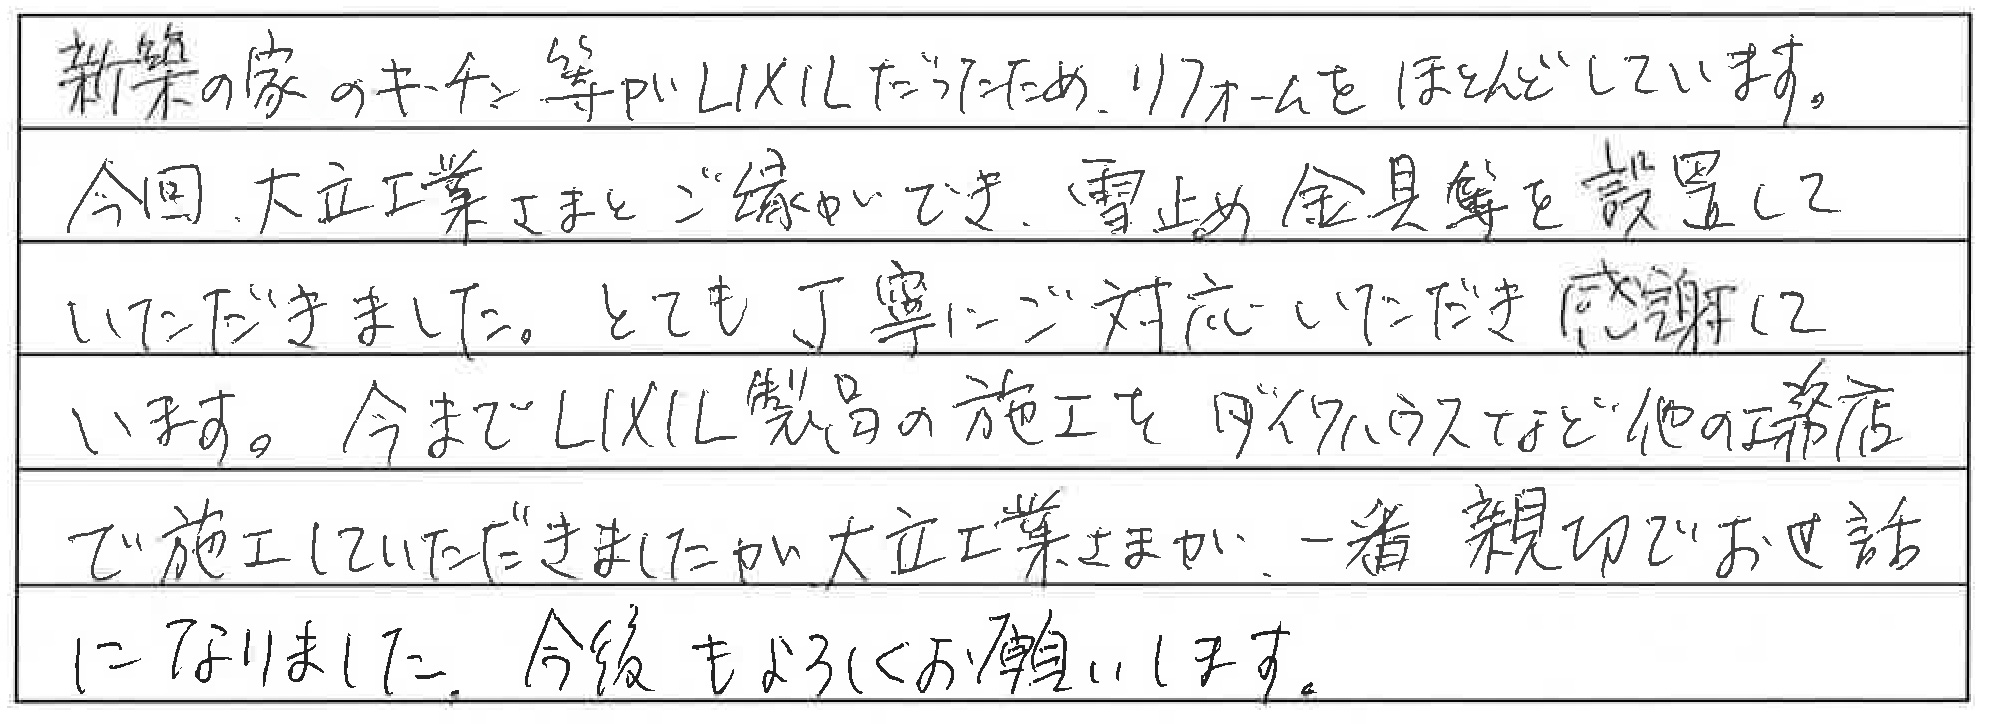 新築の家のキッチン等がLIXILだったため、リフォームをほとんどしています。
今回、大立工業さまとご縁ができ、雪止め金具等を設置して
いただきました。とても丁寧にご対応いただき感謝して
います。今までLIXIL製品の施工をダイワハウスなど他の工務店
で施工していただきましたが、大立工業さまが、一番親切でお世話
になりました。今後もよろしくお願いします。